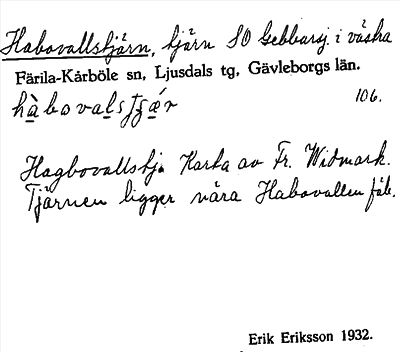 Habovallstjärn, tjärn SO Gebbarsj. i västra
Färila-Kårböle sn, Ljusdals tg, Gävleborgs län.
106.
Hagbovallstj. Karta av Fr. Widmark.
Tjärnen ligger nära Habovallen fäb.
Erik Eriksson 1932.